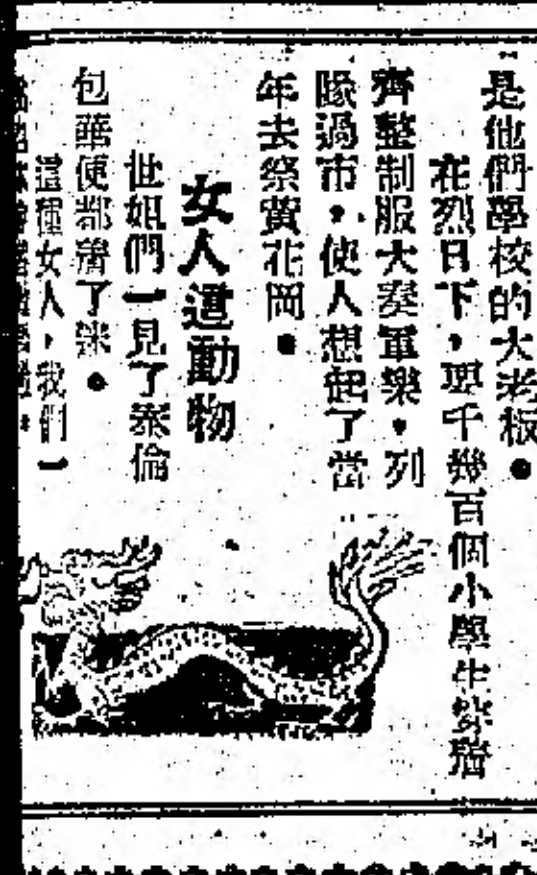 是他們學校的大老板。
在烈日下，要千幾百個小學生穿着
齊整制服大奏軍樂，列
隊過市，使人想起了當
年去祭黃花岡。
女人這動物
世姐們一見了泰倫
包華便都着了迷。
這種女人，我們一